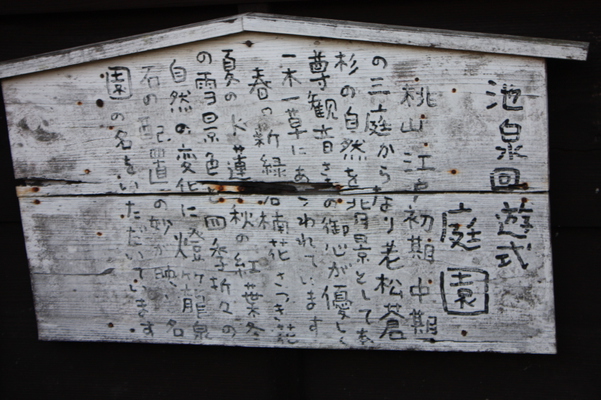 池泉回遊式
庭園
桃山江戸初期中期
の三庭からなり老松蒼
杉の自然を背景として本
尊観音さまの御心が優しく
一木一草にあらわれています
春の新緑石楠花さつき花
夏の火蓮秋の紅葉冬
の雪景色と四季折々の
自然の変化に燈籠泉
石の配置の妙が映り名
園の名をいただいています